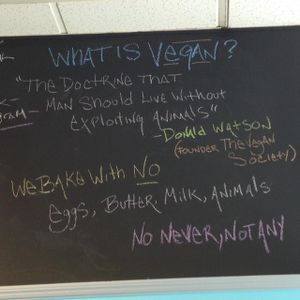 WHAT IS VEGAN?
"THE DOCTRINE THAT
MAN SHOULD LIVE WITHOUT
EXPLOITING ANIMALS"
- DONALD WATSON
(FOUNDER THE VEGAN
SOCIETY)
WE BAKE WITH NO
EGGS, BUTTER, MILK, ANIMALS
NO NEVER, NOT ANY